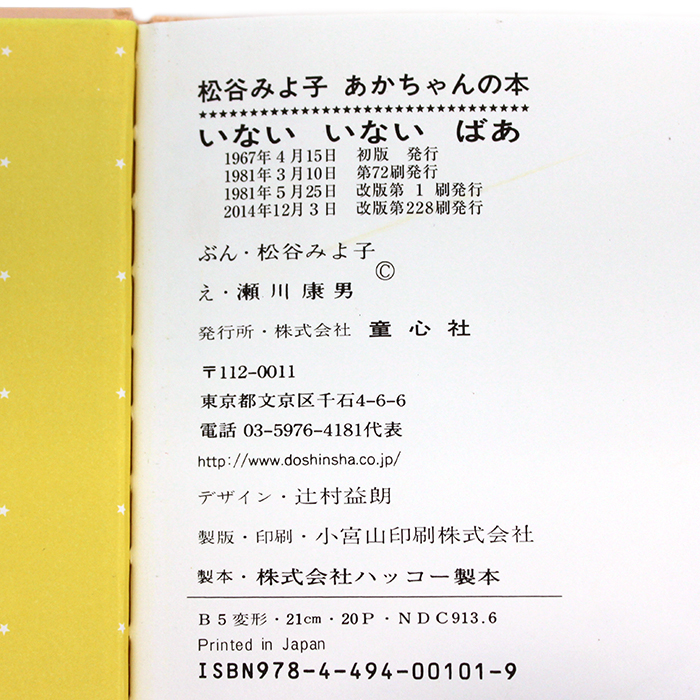 松谷みよ子 あかちゃんの本
★★★★★★★★★★★★★★★★★★★★★★★★★★★★★★★★★★★★★★★★
いない いない ばあ
1967年4月15日 初版 発行
1981年3月10日 第72刷発行
1981年5月25日 改版第 1 刷発行
2014年12月3日 改版第228刷発行
ぶん・松谷みよ子
©
え・瀬川康男
発行所・株式会社 童心社
〒112-0011
東京都文京区千石4-6-6
電話 03-5976-4181代表
http://www.doshinsha.co.jp/
デザイン・辻村益朗
製版・印刷・小宮山印刷株式会社
製本・株式会社ハッコー製本
B5変形・21cm・20P・NDC913.6
Printed in Japan
ISBN978-4-494-00101-9